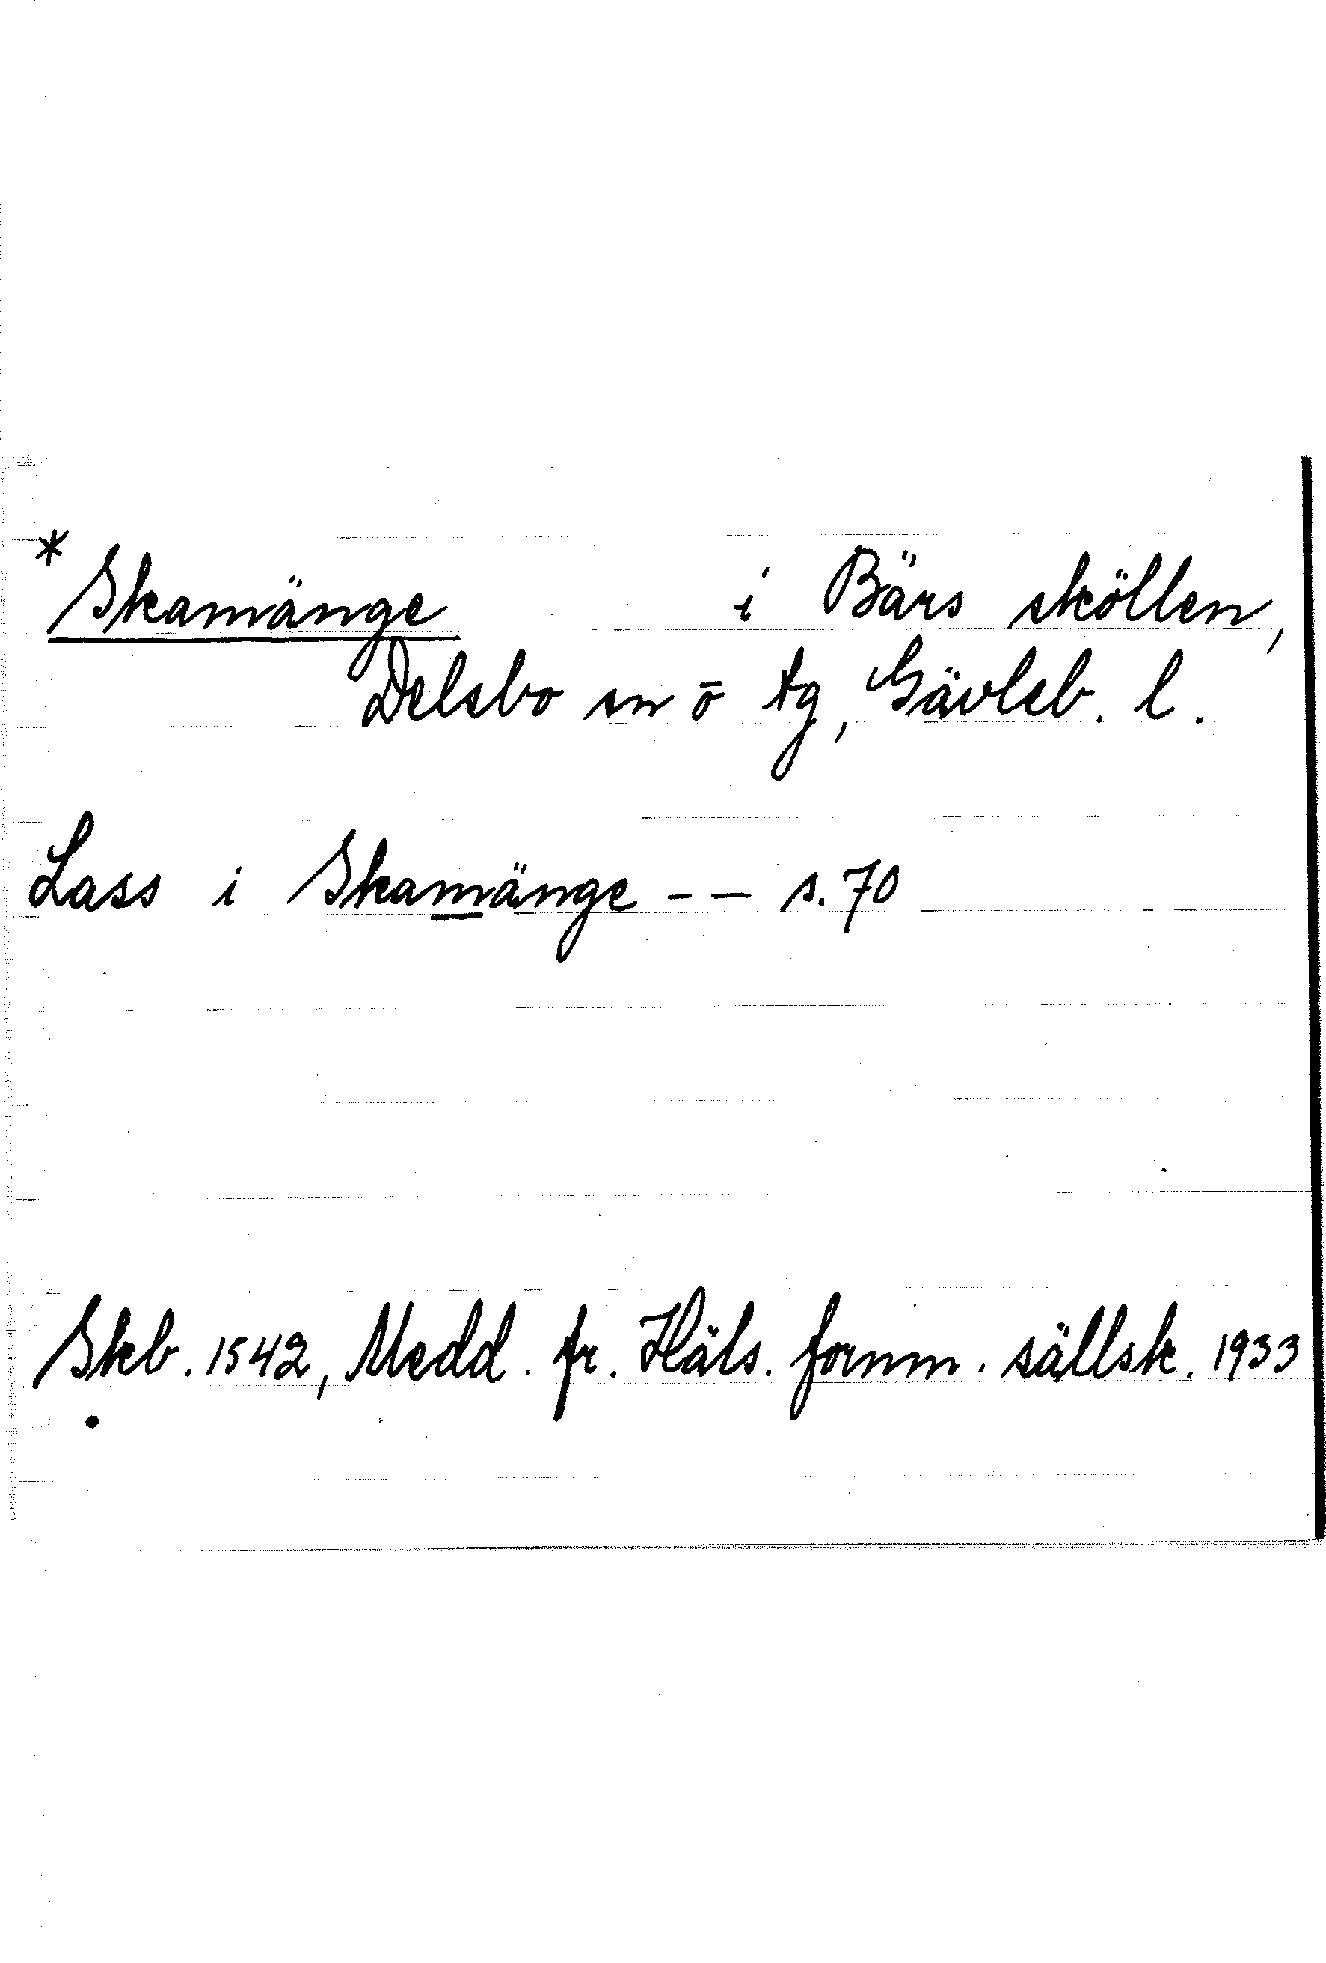 *Skamänge i Bärs sköllen,
Delsbo sn o tg, Gävleb. l.
Lass i Skamänge -- s. 70
Skb. 1542, Medd. fr. Häls. fornm. sällsk. 1933